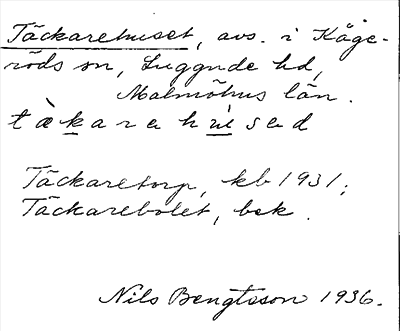 Täckarehuset, avs. i Kåge-
röds sn, Luggude hd,
Malmöhus län.
tæ̀karehu̇sed
Täckaretorp, kb 1931;
Täckarebolet, bsk.
Nils Bengtsson 1936.